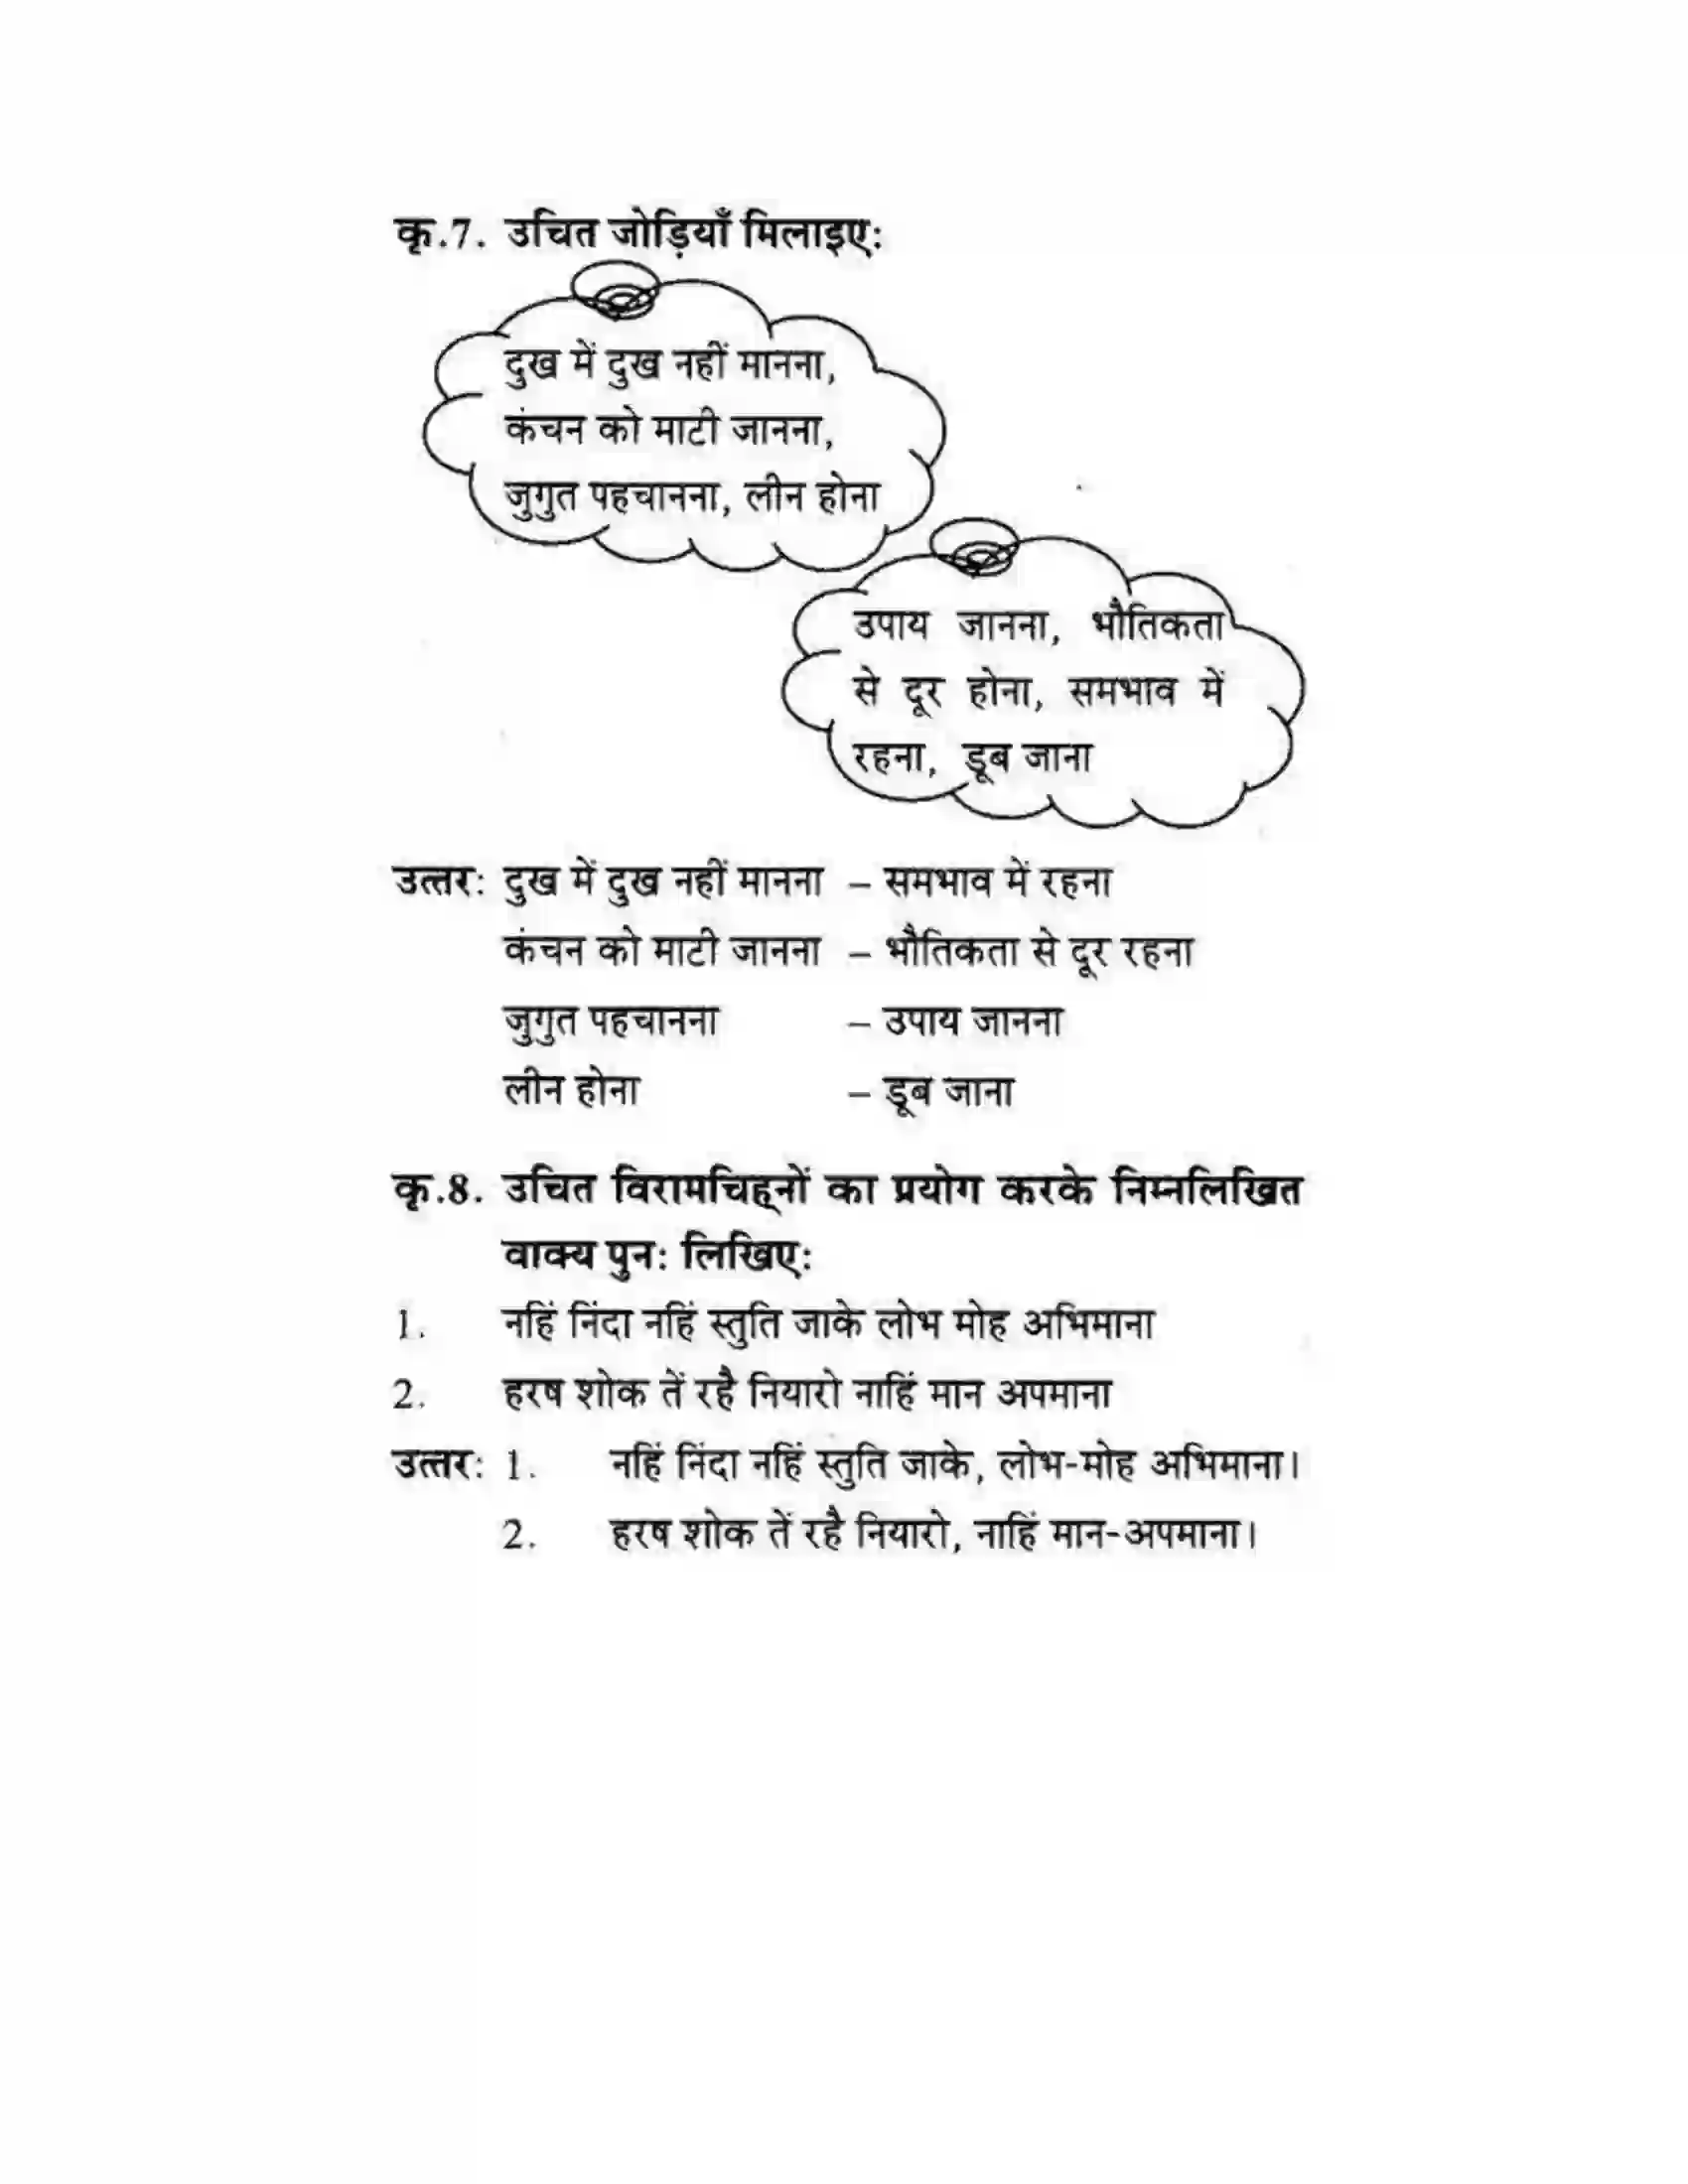 कृ.7. उचित जोड़ियाँ मिलाइए:
दुख में दुख नहीं मानना,
कंचन को माटी जानना,
जुगुत पहचानना, लीन होना
उपाय जानना, भौतिकता
से दूर होना, समभाव में
रहना, डूब जाना
उत्तर: दुख में दुख नहीं मानना – समभाव में रहना
कंचन को माटी जानना – भौतिकता से दूर रहना
जुगुत पहचानना – उपाय जानना
लीन होना – डूब जाना
कृ.8. उचित विरामचिह्नों का प्रयोग करके निम्नलिखित
वाक्य पुन: लिखिए:
1. नहिं निंदा नहिं स्तुति जाके लोभ मोह अभिमाना
2. हरष शोक तें रहै नियारो नाहिं मान अपमाना
उत्तर: 1. नहिं निंदा नहिं स्तुति जाके, लोभ-मोह अभिमाना।
2. हरष शोक तें रहै नियारो, नाहिं मान-अपमाना।